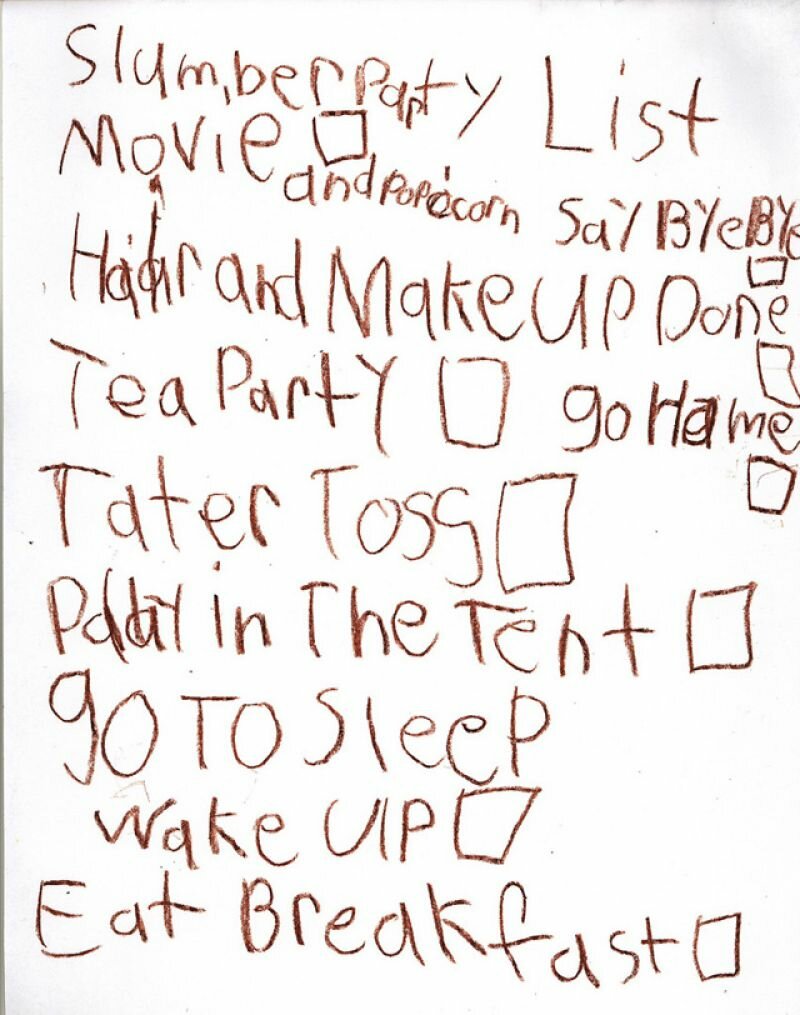 Slumber Party List
Movie
and Popcorn
Say Bye Bye
Hair and Makeup Done
Tea Party
go Home
Tater Toss
Play in The Tent
go To Sleep
Wake UP
Eat Breakfast